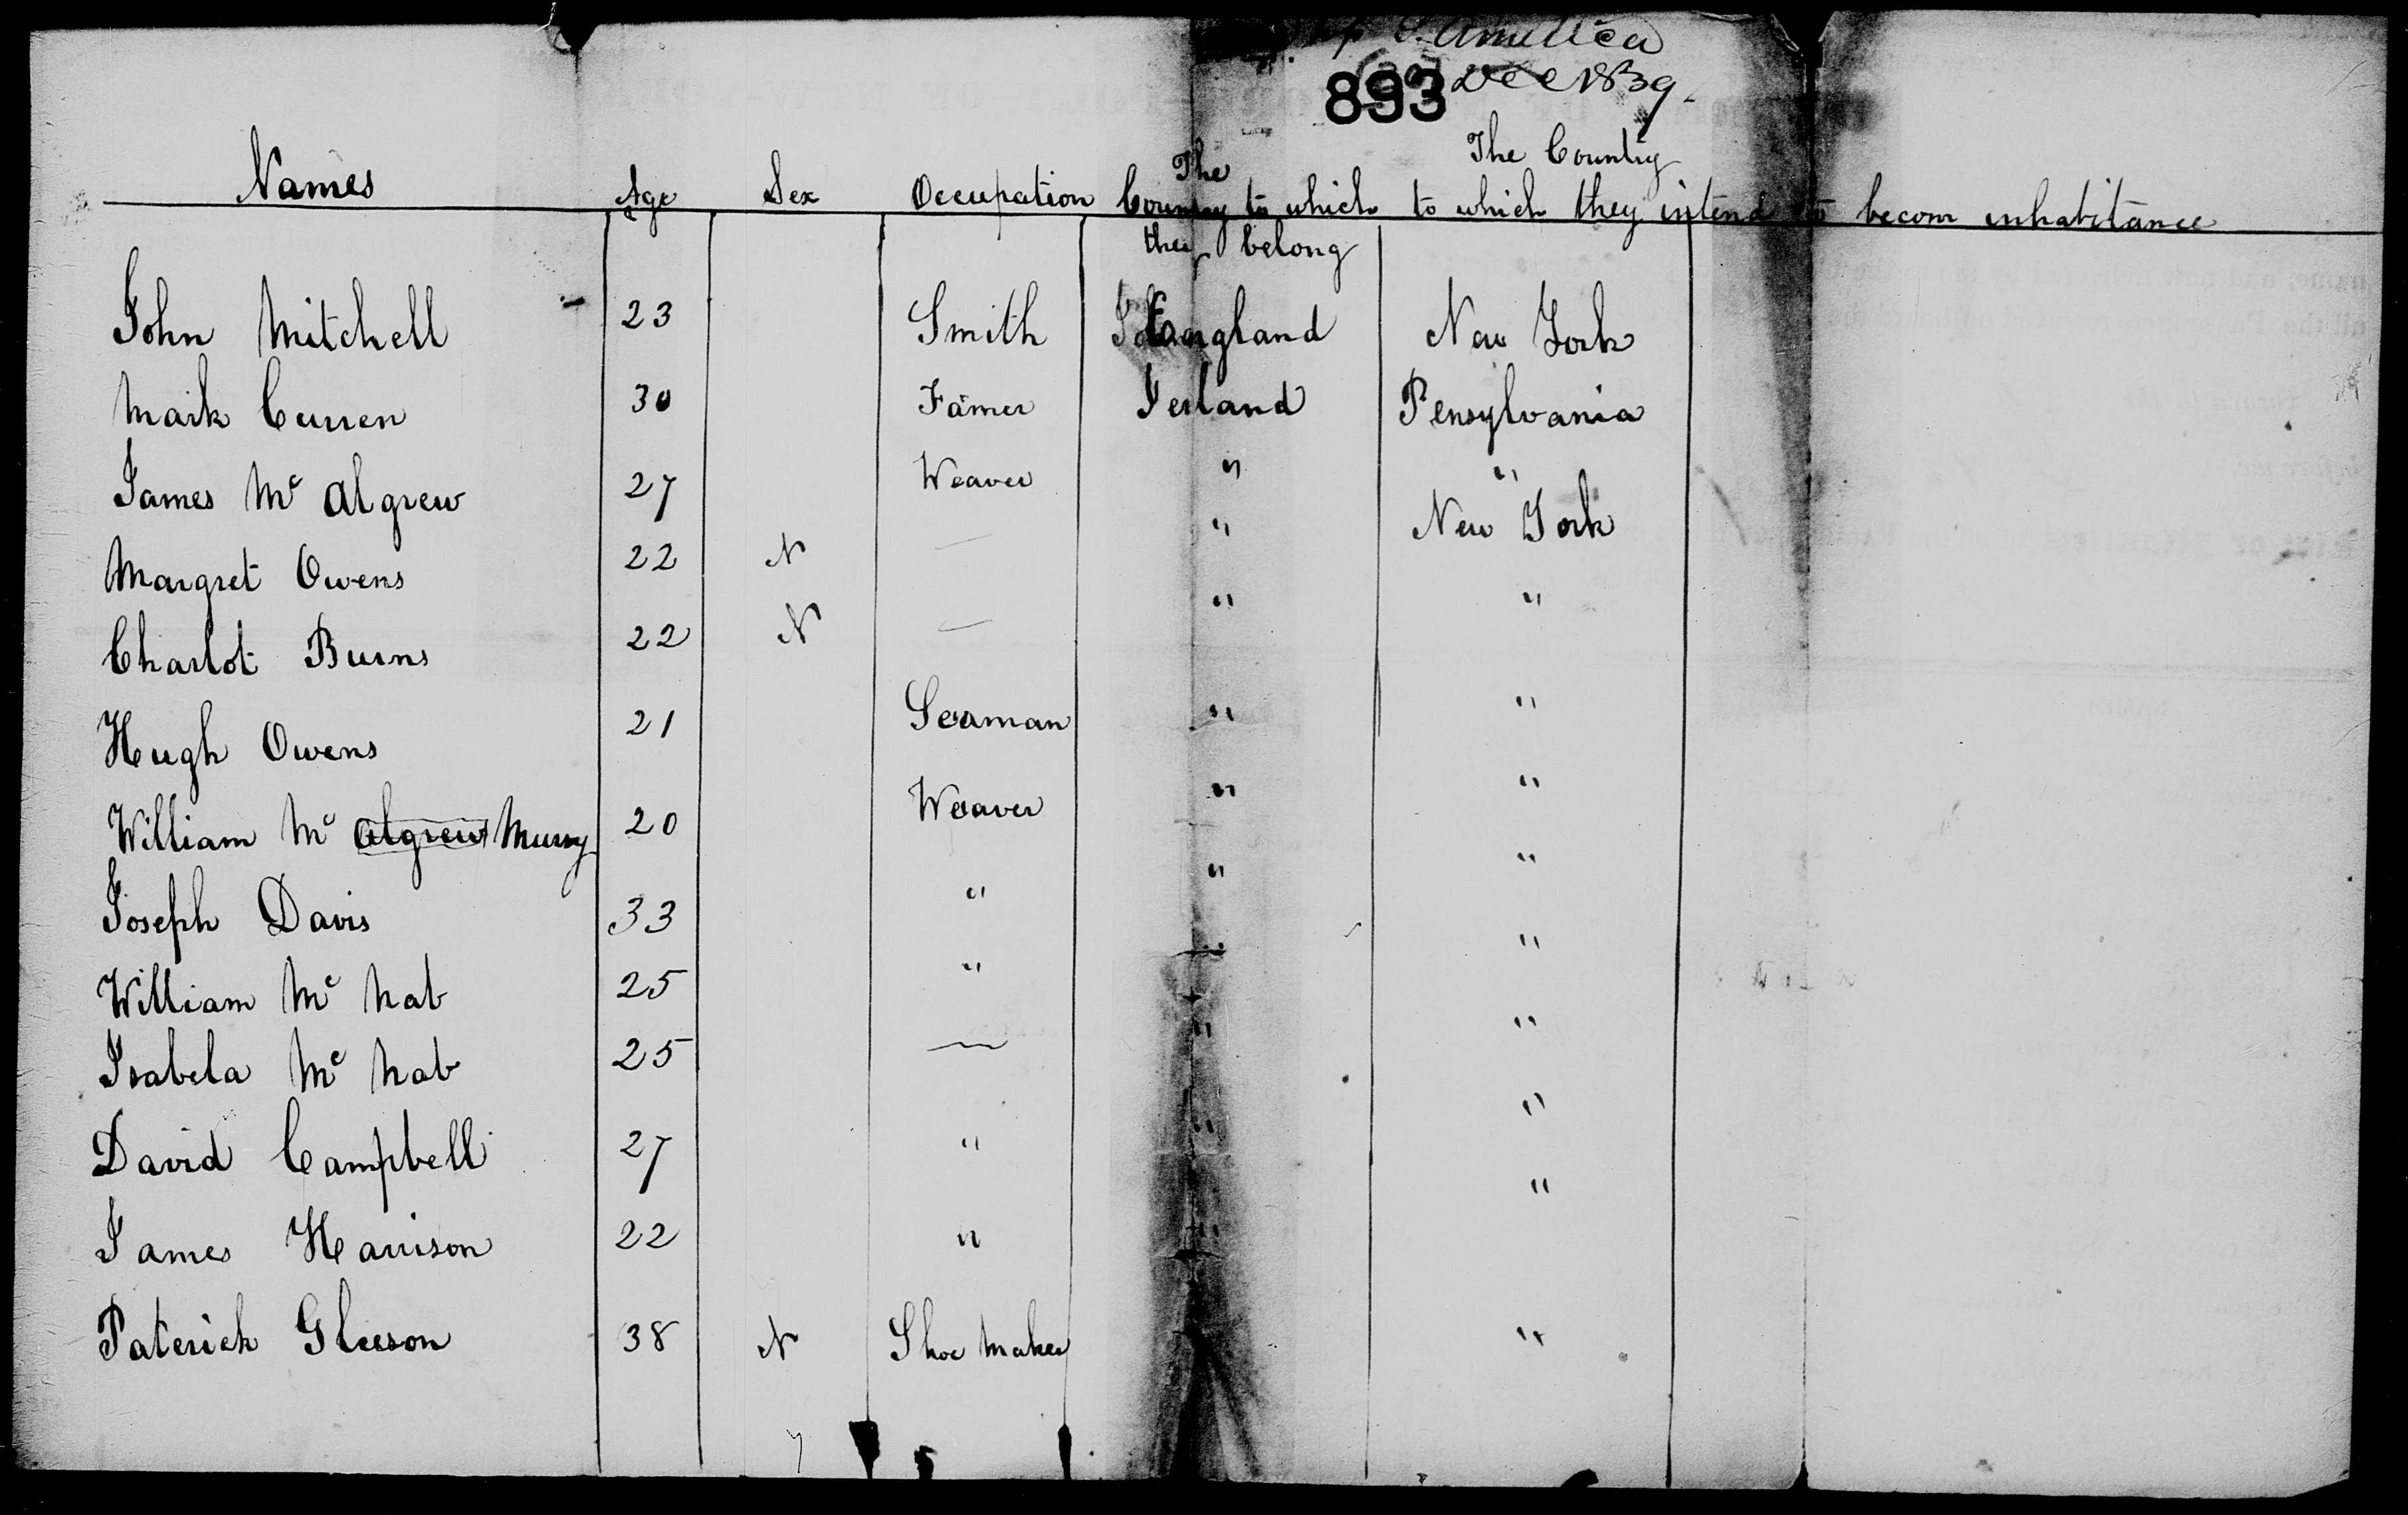 S. America
893 Dec 1839.
Names Age Sex Occupation The Country to which they belong The Country to which they intend to becom inhabitance
John Mitchell 23 Smith England New York
Mark Curren 30 Famer Ierland Pensylvania
James Mc Algrew 27 Weaver " "
Margret Owens 22 N — " New York
Charlot Burns 22 N — " "
Hugh Owens 21 Seaman " "
William Mc Algrew Murry 20 Weaver " "
Joseph Davis 33 " " "
William Mc Nab 25 " " "
Isabela Mc Nab 25 — " "
David Campbell 27 " " "
James Harrison 22 " " "
Paterick Gleeson 38 N Shoe Maker "